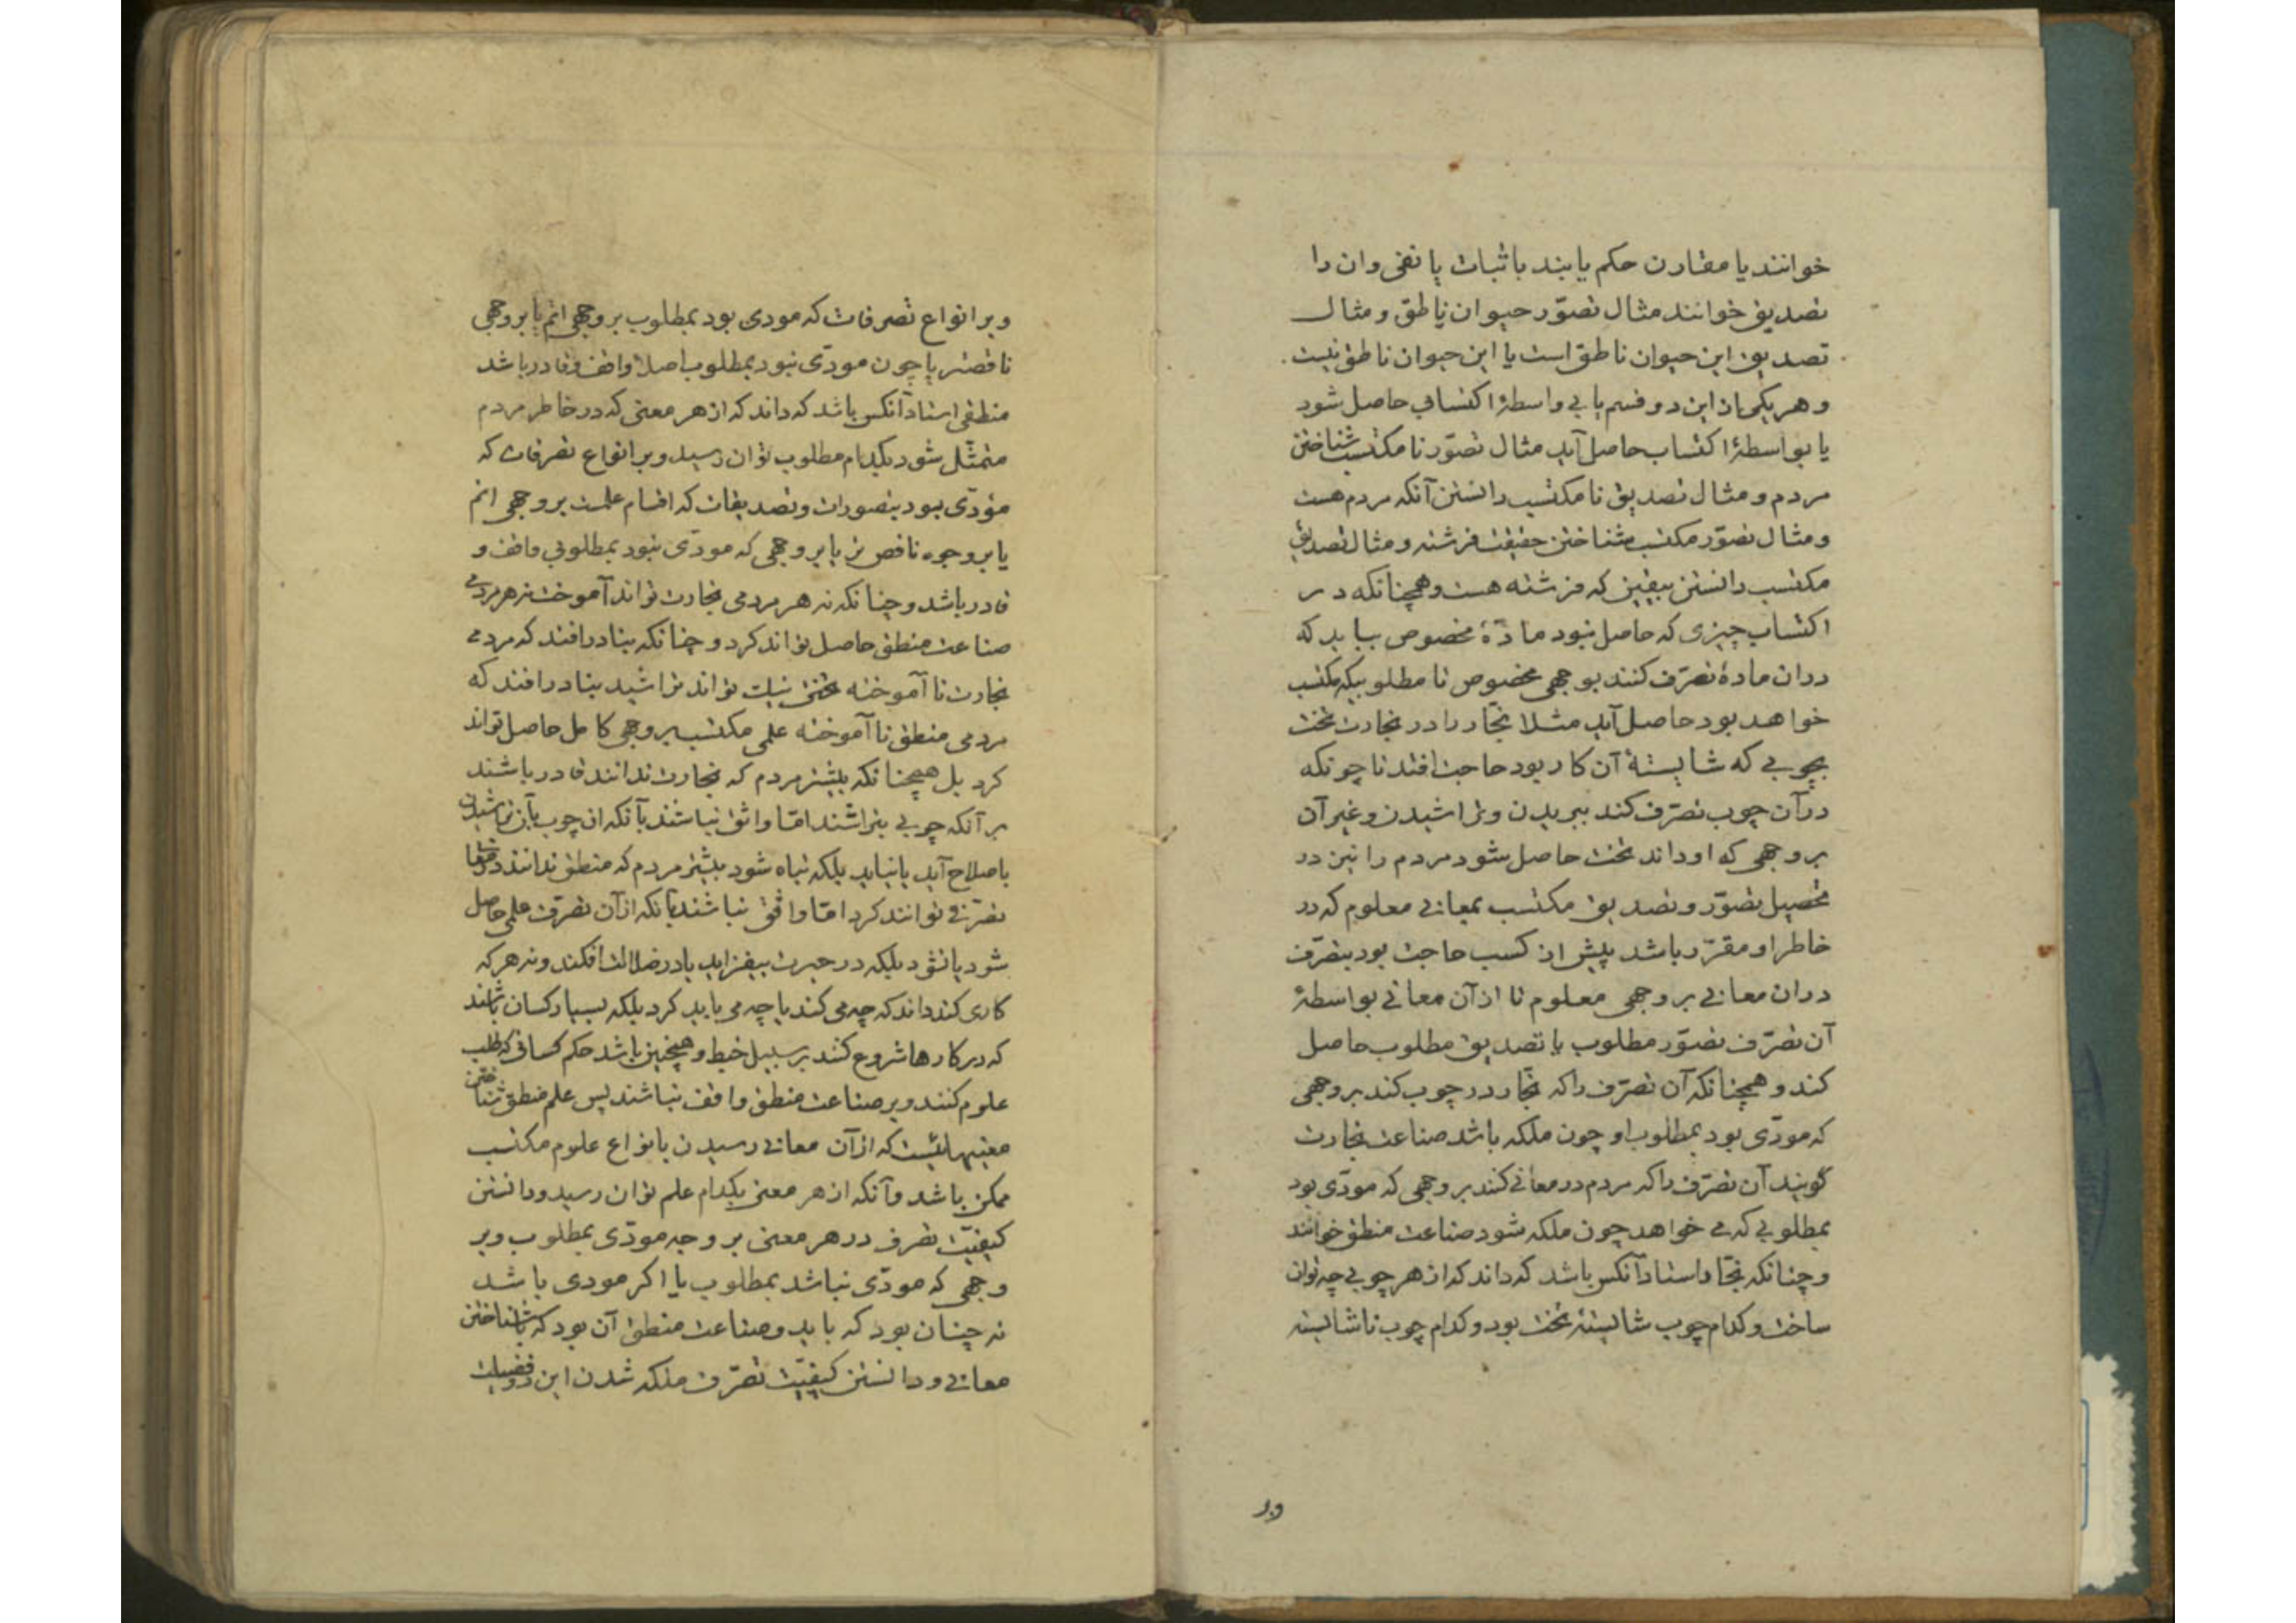 خوانند یا مقارن حکم یابند باثبات یا نفی وان را
تصدیق خوانند مثال تصوّر حیوان ناطق و مثال
تصدیق این حیوان ناطق است یا این حیوان ناطق نیست
و هر یکی ازین دو قسم یا بی واسطۀ اکتسابی حاصل شود
یا بواسطۀ اکتساب حاصل آید مثال تصوّر نا مکتسب شناختن
مردم و مثال تصدیق نا مکتسب دانستن آنکه مردم هست
و مثال تصوّر مکتسب شناختن حقیقت فرشته و مثال تصدیق
مکتسب دانستن بیقین که فرشته هست و همچنانکه در
اکتساب چیزی که حاصل نبود مادّۀ مخصوص بباید که
دران مادۀ تصرّف کنند بوجهی مخصوص تا مطلوب که مکتسب
خواهد بود حاصل آید مثلا نجّار را در نجارت تخت
بچوبی که شایستۀ آن کار بود حاجت افتد تا چونکه
در آن چوب تصرّف کند ببریدن و تراشیدن و غیر آن
بر وجهی که او داند تخت حاصل شود مردم را نیز در
تحصیل تصوّر و تصدیق مکتسب بمعانی معلوم که در
خاطر او مقرّر باشد پیش از کسب حاجت بود بتصرّف
دران معانی بر وجهی معلوم تا از آن معانی بواسطۀ
آن تصرّف تصوّر مطلوب یا تصدیق مطلوب حاصل
کند و همچنانکه آن تصرّف را که نجّار در چوب کند بر وجهی
که مودّی بود بمطلوب او چون ملکه باشد صناعت نجارت
گویند آن تصرّف را که مردم در معانی کند بر وجهی که مودّی بود
بمطلوبی که می خواهد چون ملکه شود صناعت منطق خوانند
و چنانکه نجّار استاد آنکس باشد که داند که از هر چوبی چه توان
ساخت و کدام چوب شایستۀ تخت بود و کدام چوب ناشایسته
وبر
وبر انواع تصرفات که مودی بود بمطلوب بر وجهی اتم یا بر وجهی
ناقصتر یا چون مودّی نبود بمطلوب اصلا واقف و قادر باشد
منطقی استاد آنکس باشد که داند که از هر معنی که در خاطر مردم
متمثّل شود بکدام مطلوب توان رسید و بر انواع تصرفات که
مؤدّی بود بتصورات و تصدیقات که اقسام علمست بر وجهی اتم
یا بر وجوه ناقص تر یا بر وجهی که مودّی نبود بمطلوبی واقف و
قادر باشد و چنانکه نه هر مردمی نجارت تواند آموخت نه هر مردمی
صناعت منطق حاصل تواند کرد و چنانکه بنادر افتد که مردمی
نجارت نا آموخته تختی نیک تواند تراشید بنادر افتد که
مردمی منطق نا آموخته علمی مکتسب بر وجهی کامل حاصل تواند
کرد بل همچنانکه بیشتر مردم که نجارت ندانند قادر باشند
بر آنکه چوبی بتراشند امّا واثق نباشند بآنکه ان چوب بآن تراشیدن
باصلاح آید یا نیاید بلکه تباه شود بیشتر مردم که منطق ندانند در معانی
تصرّفی توانند کرد امّا واثق نباشند بآنکه از آن تصرّف علمی حاصل
شود یا نشود بلکه در حیرت بیفزاید یا در ضلالت افکند و نه هر که
کاری کند داند که چه می کند یا چه می باید کرد بلکه بسیار کسان باشند
که در کارها شروع کنند بر سبیل خبط و همچنین باشد حکم کسانی که طلب
علوم کنند و بر صناعت منطق واقف نباشند پس علم منطق شناختن
معنیهائیست که از آن معانی رسیدن بانواع علوم مکتسب
ممکن باشد و آنکه از هر معنی بکدام علم توان رسید و دانستن
کیفیّت تصرف در هر معنی بر وجه مودّی بمطلوب و بر
وجهی که مودّی نباشد بمطلوب یا اکر مودی باشد
نه چنان بود که باید و صناعت منطق آن بود که با شناختن
معانی و دانستن کیفیّت تصرّف ملکه شدن این دو فضیلت